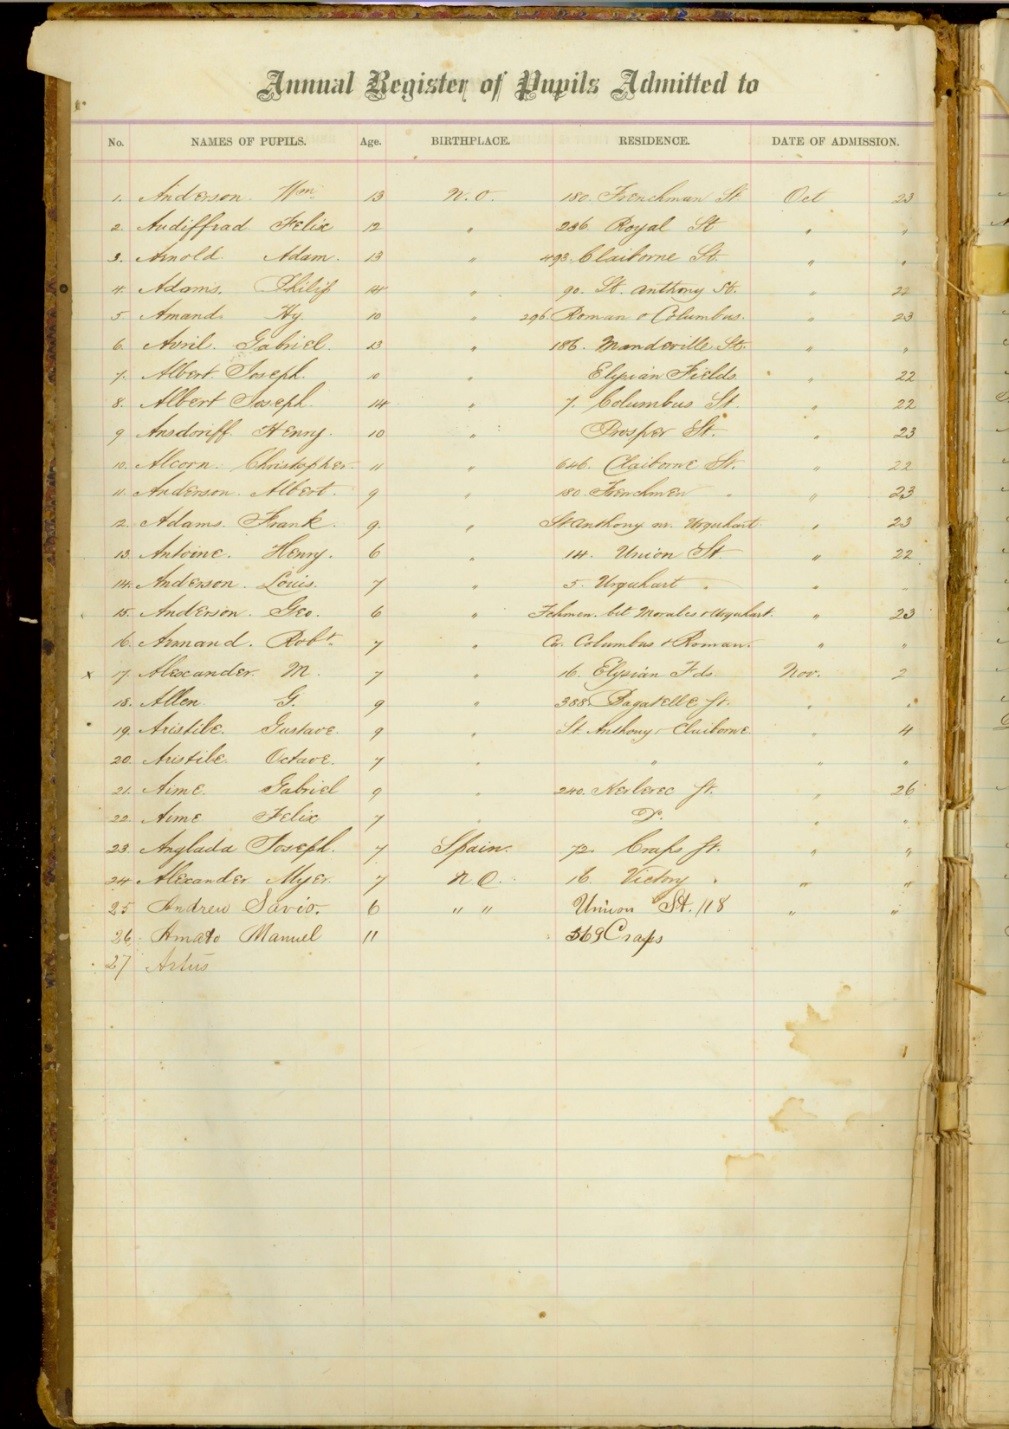 Annual Register of Pupils Admitted to
No. NAMES OF PUPILS. Age. BIRTHPLACE. RESIDENCE. DATE OF ADMISSION.
1. Anderson Wm. 13 N. O. 180. Frenchman St Oct 23
2. Audiffrad Felix 12 " 236 Royal St " "
3. Arnold Adam. 13 " 493 Claiborne St. " "
4. Adams. Philip 14 " 90. St. Anthony St. " 22
5 Amand Hy. 10 " 296. Roman & Columbus. " 23
6. Avril. Gabriel 13 " 186. Mandeville St. " "
7. Albert Joseph. " Elysian Fields " 22
8. Albert Joseph. 14 " 7. Columbus St. " 22
9 Ansdoriff Henry. 10 " Prosper St. " 23
10. Alcorn. Christopher 11 " 646. Claiborne St. " 22
11. Anderson. Albert. 9 " 180. Frenchmen " " 23
12. Adams. Frank. 9. " St Anthony nr. Urquhart " 23
13. Antoine. Henry. 6 " 14. Union St. " 22
14. Anderson. Louis. 7 " 5. Urquhart " " "
15. Anderson. Geo. 6 " bet Morales & Urquhart. " 23
16. Armand. Robt. 7 " Co. Columbus & Roman. " "
x 17 Alexander M. 7 " 16. Elysian Fds. Nov. 2
18. Allen G. 9 " 388. Bagatelle St. " "
19. Aristile. Gustave. 9 " St. Anthony & Claiborne " 4
20. Aristile. Octave. 7 " " " "
21. Aime. Gabriel 9 " 240. Kerlerec St. " 26
22. Aime Felix 7 " D. " "
23. Anglada Joseph. 7 Spain. 72. Craps St. " "
24 Alexander Myer. 7 N O. 16 Victory " " "
25 Andrew Savio. 6 " " Union St. 118 " "
26 Amato Manuel 11 569 Craps
27 Artus